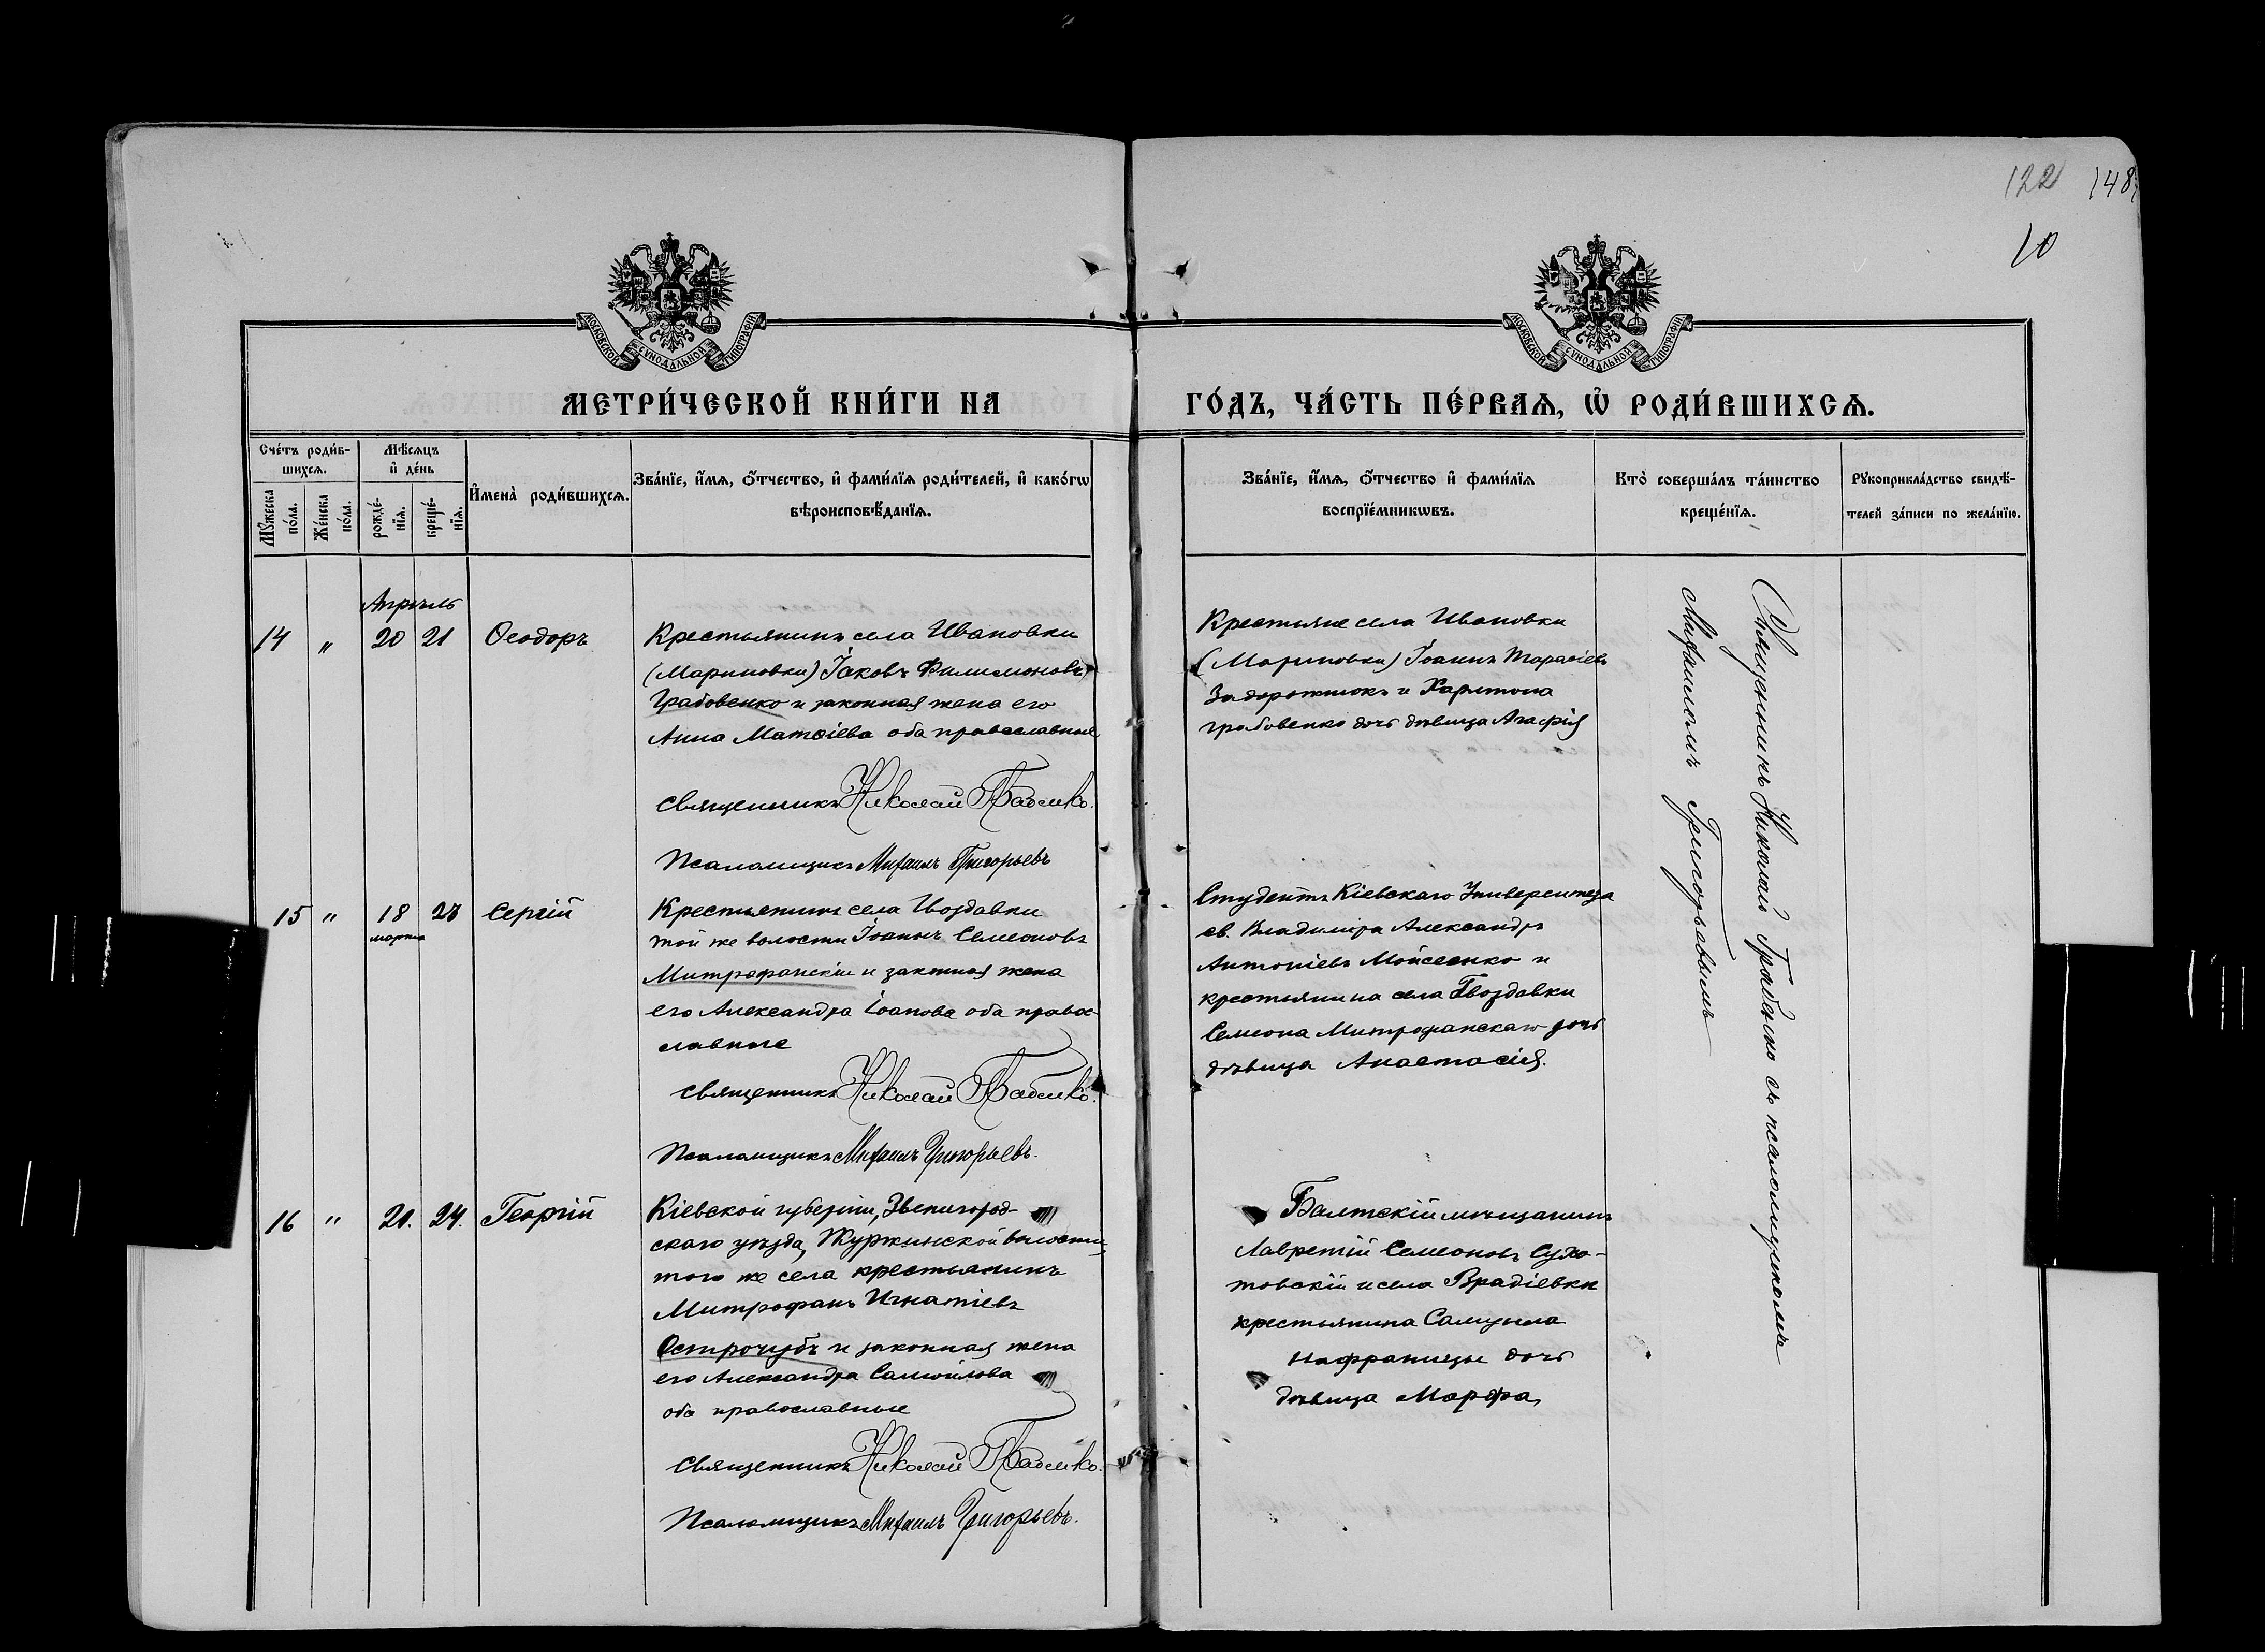 122 148
10
МОСКОВСКОЙ СѴНОДАЛЬНОЙ ТИПОГРАФІИ
МОСКОВСКОЙ СѴНОДАЛЬНОЙ ТИПОГРАФІИ
МЕТРИ́ЧЕСКОЙ КНИ́ГИ НА ГО́ДЪ, ЧА́СТЬ ПЕ́РВАѦ, Ѽ РОДИ́ВШИХСѦ.
Сче́тъ роди́в-
шихсѧ.
Мꙋжеска по́ла.
Же́нска по́ла.
Мѣ́сѧцъ
и҆ де́нь
рожде́-
нїѧ.
креще́-
нїѧ.
И҆мена̀ роди́вшихсѧ.
Зва́нїе, и҆́мѧ, ѻ҆́тчество, и҆ фами́лїѧ роди́телей, и҆ како́гѡ
вѣроисповѣ́данїѧ.
Зва́нїе, и҆́мѧ, ѻ҆́тчество и҆ фами́лїѧ
воспрїе́мникѡвъ.
Кто̀ соверша́лъ та́инство
креще́нїѧ.
Рꙋкоприкла́дство свидѣ́-
телей за́писи по жела́нїю.
Апрѣль
14 " 20 21 Ѳеодоръ
Крестьянинъ села Ивановки
(Мариновки) Іаковъ Филимоновъ
Грабовенко и законная жена его
Анна Матѳіева оба православные
Священникъ Николай
Псаломщикъ Михаилъ Григорьевъ
Крестьяне села Ивановки
(Мариновки) Іоаннъ Тарасіевъ
Задорожнюкъ и Харитона
Грабовенко дочь дѣвица Агафія
15 " 18 23 Сергій
марта
Крестьянинъ села Гвоздавки
той же волости Іоаннъ Семеоновъ
Митрофанскій и законная жена
его Александра Іоанова оба правос-
лавные
Священникъ Николай
Псаломщикъ Михаилъ Григорьевъ.
Студентъ Кіевскаго Университета
св. Владиміра Александръ
Антоніевъ Мойсеенко и
крестьянина села Гвоздавки
Семеона Митрофанскаго дочь
дѣвица Анастасія.
16 " 21. 24. Георгій
Кіевской губерніи, Звенигород-
скаго уѣзда, Журжинской волости,
того же села крестьянинъ
Митрофанъ Игнатіевъ
Острочубъ и законная жена
его Александра Самойлова
оба православные
Священникъ Николай
Псаломщикъ Михаилъ Григорьевъ.
Балтскій мѣщанинъ
Лаврентій Семеоновъ
и села Врадіевки
крестьянина
дочь
дѣвица Марфа
Священникъ Николай съ псаломщикомъ
Михаиломъ Григорьевымъ